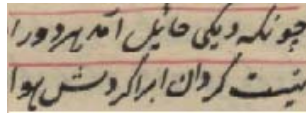 چونکه دیکی حائل آمد هر دو را
نیست کردان ابر را کردش هوا